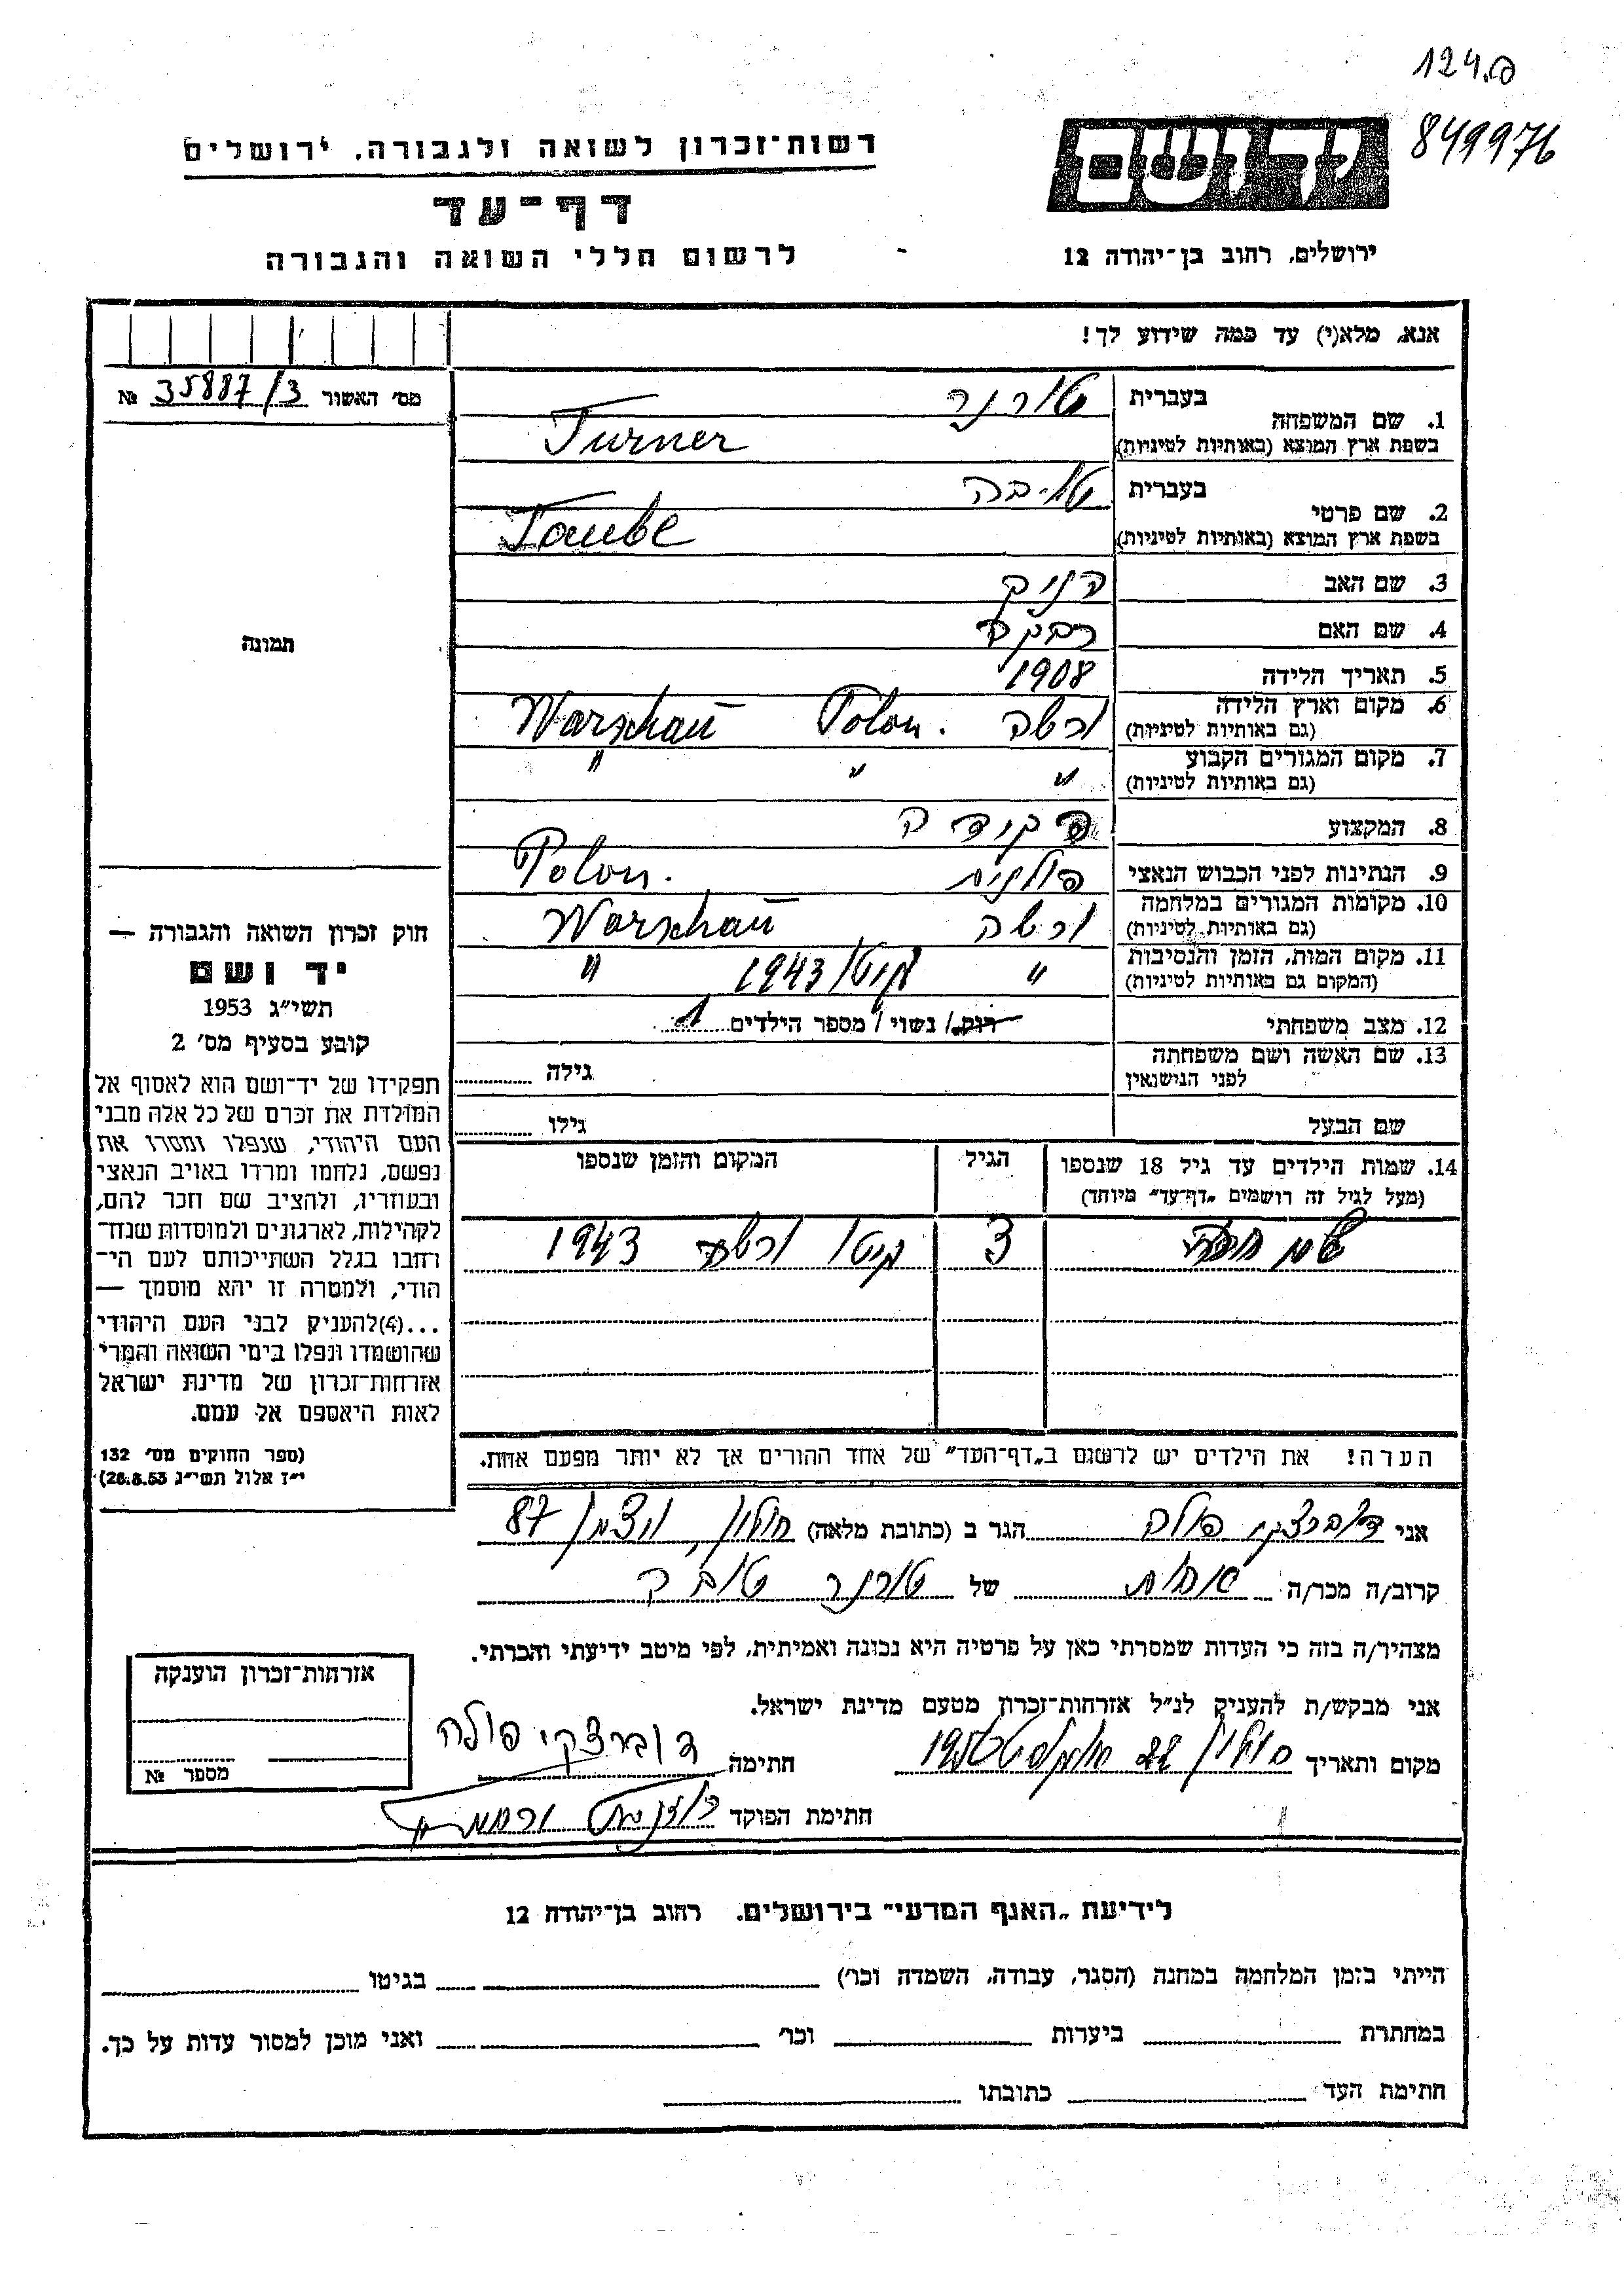 124.ט
849976
יד ושם
רשות־זכרון לשואה ולגבורה, ירושלים
דף־עד
לרשום חללי השואה והגבורה
ירושלים, רחוב בן־יהודה 12
אנא, מלא(י) עד כמה שידוע לך!
מס׳ האשור 35887/3 №
1. שם המשפחה בעברית טורנר
בשפת ארץ המוצא (באותיות לטיניות) Turner
2. שם פרטי בעברית טויבה
בשפת ארץ המוצא (באותיות לטיניות) Taube
3. שם האב
4. שם האם רבקה
5. תאריך הלידה 1908
6. מקום וארץ הלידה ורשה Polon. Warschau
(גם באותיות לטיניות)
7. מקום המגורים הקבוע " " "
(גם באותיות לטיניות)
8. המקצוע פקידה
9. הנתינות לפני הכבוש הנאצי פולנית Polon.
10. מקומות המגורים במלחמה ורשה Warschau
(גם באותיות לטיניות)
11. מקום המות, הזמן והנסיבות " גיטו 1943 "
(המקום גם באותיות לטיניות)
12. מצב משפחתי רוק / נשוי / מספר הילדים 1
13. שם האשה ושם משפחתה
לפני הנישואין
גילה
שם הבעל גילו
14. שמות הילדים עד גיל 18 שנספו הגיל המקום והזמן שנספו
(מעל לגיל זה רושמים „דף־עד״ מיוחד)
3 גיטו ורשה 1943
הערה! את הילדים יש לרשום ב„דף־העד״ של אחד ההורים אך לא יותר מפעם אחת.
תמונה
חוק זכרון השואה והגבורה —
יד ושם
תשי״ג 1953
קובע בסעיף מס׳ 2
תפקידו של יד־ושם הוא לאסוף אל
המולדת את זכרם של כל אלה מבני
העם היהודי, שנפלו ומסרו את
נפשם, נלחמו ומרדו באויב הנאצי
ובעוזריו, ולהציב שם וזכר להם,
לקהילות, לארגונים ולמוסדות שנח־
רבו בגלל השתייכותם לעם הי־
הודי, ולמטרה זו יהא מוסמך —
...(4)להעניק לבני העם היהודי
שהושמדו ונפלו בימי השואה והמרי
אזרחות־זכרון של מדינת ישראל
לאות היאספם אל עמם.
(ספר החוקים מס׳ 132
י״ז אלול תשי״ג 28.8.53)
אני דוברצקי פולה הגר ב (כתובת מלאה) חולון, ויצמן 87
קרוב/ה מכר/ה אחות של טורנר טובה
מצהיר/ה בזה כי העדות שמסרתי כאן על פרטיה היא נכונה ואמיתית, לפי מיטב ידיעתי והכרתי.
אני מבקש/ת להעניק לנ״ל אזרחות־זכרון מטעם מדינת ישראל.
מקום ותאריך חולון חתימה דוברצקי פולה
חתימת הפוקד
אזרחות־זכרון הוענקה
מספר №
לידיעת „האגף המדעי״ בירושלים, רחוב בן־יהודה 12
הייתי בזמן המלחמה במחנה (הסגר, עבודה, השמדה וכו׳) בגיטו
במחתרת ביערות וכו׳ ואני מוכן למסור עדות על כך.
חתימת העד כתובתו